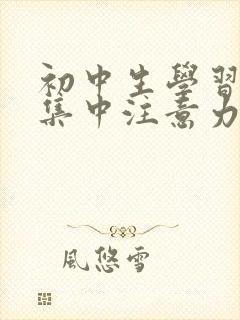 初中生學習
集中注意力
風悠雪